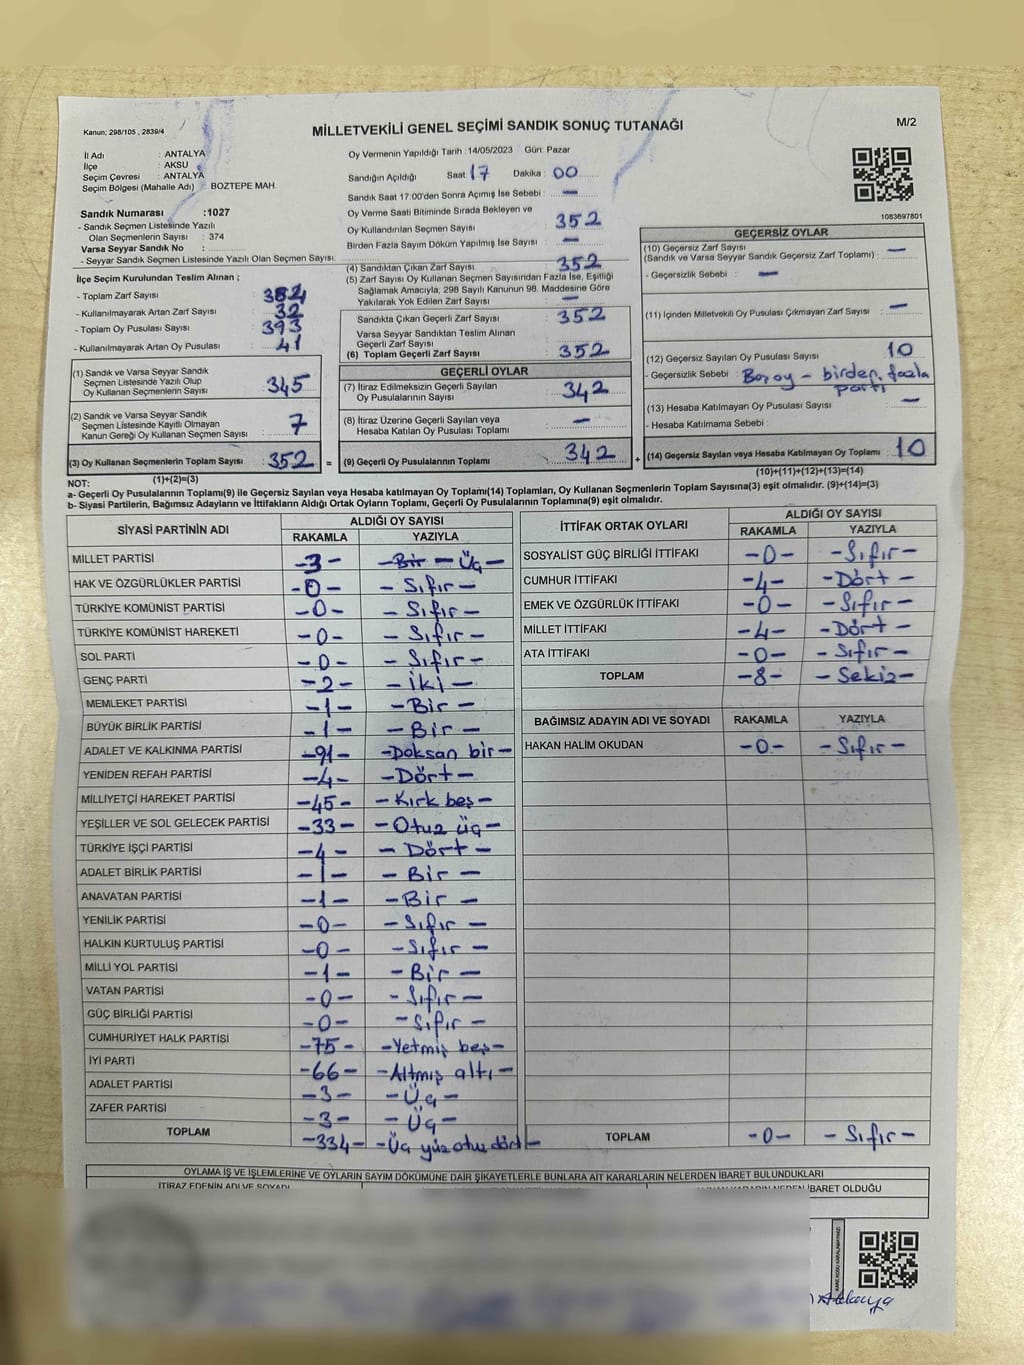 Kanun; 298/105 , 2839/4
MİLLETVEKİLİ GENEL SEÇİMİ SANDIK SONUÇ TUTANAĞI
M/2
İl Adı : ANTALYA
İlçe : AKSU
Seçim Çevresi : ANTALYA
Seçim Bölgesi (Mahalle Adı) : BOZTEPE MAH.
Sandık Numarası :1027
- Sandık Seçmen Listesinde Yazılı
Olan Seçmenlerin Sayısı : 374
Varsa Seyyar Sandık No :
- Seyyar Sandık Seçmen Listesinde Yazılı Olan Seçmen Sayısı:
Oy Vermenin Yapıldığı Tarih : 14/05/2023 Gün: Pazar
Sandığın Açıldığı Saat : 17 Dakika : 00
Sandık Saat 17:00'den Sonra Açımış İse Sebebi : —
Oy Verme Saati Bitiminde Sırada Bekleyen ve
Oy Kullandırılan Seçmen Sayısı : 352
Birden Fazla Sayım Döküm Yapılmış İse Sayısı : —
1083697801
İlçe Seçim Kurulundan Teslim Alınan ;
- Toplam Zarf Sayısı :
- Kullanılmayarak Artan Zarf Sayısı : 32
- Toplam Oy Pusulası Sayısı : 393
- Kullanılmayarak Artan Oy Pusulası : 41
(1) Sandık ve Varsa Seyyar Sandık
Seçmen Listesinde Yazılı Olup
Oy Kullanan Seçmenlerin Sayısı : 345
(2) Sandık ve Varsa Seyyar Sandık
Seçmen Listesinde Kayıtlı Olmayan
Kanun Gereği Oy Kullanan Seçmen Sayısı : 7
(3) Oy Kullanan Seçmenlerin Toplam Sayısı : 352 =
(1)+(2)=(3)
(4) Sandıktan Çıkan Zarf Sayısı : 352
(5) Zarf Sayısı Oy Kullanan Seçmen Sayısından Fazla İse, Eşitliği
Sağlamak Amacıyla, 298 Sayılı Kanunun 98. Maddesine Göre
Yakılarak Yok Edilen Zarf Sayısı : —
Sandıkta Çıkan Geçerli Zarf Sayısı : 352
Varsa Seyyar Sandıktan Teslim Alınan
Geçerli Zarf Sayısı :
(6) Toplam Geçerli Zarf Sayısı : 352
GEÇERLİ OYLAR
(7) İtiraz Edilmeksizin Geçerli Sayılan
Oy Pusulalarının Sayısı : 342
(8) İtiraz Üzerine Geçerli Sayılan veya
Hesaba Katılan Oy Pusulası Toplamı : —
(9) Geçerli Oy Pusulalarının Toplamı : 342 +
GEÇERSİZ OYLAR
(10) Geçersiz Zarf Sayısı
(Sandık ve Varsa Seyyar Sandık Geçersiz Zarf Toplamı) : —
- Geçersizlik Sebebi : —
(11) İçinden Milletvekili Oy Pusulası Çıkmayan Zarf Sayısı : —
(12) Geçersiz Sayılan Oy Pusulası Sayısı : 10
- Geçersizlik Sebebi : Boş oy - birden fazla
parti
(13) Hesaba Katılmayan Oy Pusulası Sayısı : —
- Hesaba Katılmama Sebebi :
(14) Geçersiz Sayılan veya Hesaba Katılmayan Oy Toplamı : 10
(10)+(11)+(12)+(13)=(14)
NOT:
a- Geçerli Oy Pusulalarının Toplamı(9) ile Geçersiz Sayılan veya Hesaba katılmayan Oy Toplamı(14) Toplamları, Oy Kullanan Seçmenlerin Toplam Sayısına(3) eşit olmalıdır. (9)+(14)=(3)
b- Siyasi Partilerin, Bağımsız Adayların ve İttifakların Aldığı Ortak Oyların Toplamı, Geçerli Oy Pusulalarının Toplamına(9) eşit olmalıdır.
SİYASİ PARTİNİN ADI ALDIĞI OY SAYISI
RAKAMLA YAZIYLA
MİLLET PARTİSİ -3- -Bir- Üç-
HAK VE ÖZGÜRLÜKLER PARTİSİ -0- -Sıfır-
TÜRKİYE KOMÜNİST PARTİSİ -0- -Sıfır-
TÜRKİYE KOMÜNİST HAREKETİ -0- -Sıfır-
SOL PARTİ -0- -Sıfır-
GENÇ PARTİ -2- -İki-
MEMLEKET PARTİSİ -1- -Bir-
BÜYÜK BİRLİK PARTİSİ -1- -Bir-
ADALET VE KALKINMA PARTİSİ -91- -Doksan bir-
YENİDEN REFAH PARTİSİ -4- -Dört-
MİLLİYETÇİ HAREKET PARTİSİ -45- -Kırk beş-
YEŞİLLER VE SOL GELECEK PARTİSİ -33- -Otuz üç-
TÜRKİYE İŞÇİ PARTİSİ -4- -Dört-
ADALET BİRLİK PARTİSİ -1- -Bir-
ANAVATAN PARTİSİ -1- -Bir-
YENİLİK PARTİSİ -0- -Sıfır-
HALKIN KURTULUŞ PARTİSİ -0- -Sıfır-
MİLLİ YOL PARTİSİ -1- -Bir-
VATAN PARTİSİ -0- -Sıfır-
GÜÇ BİRLİĞİ PARTİSİ -0- -Sıfır-
CUMHURİYET HALK PARTİSİ -75- -Yetmiş beş-
İYİ PARTİ -66- -Altmış altı-
ADALET PARTİSİ -3- -Üç-
ZAFER PARTİSİ -3- -Üç-
TOPLAM -334- -Üç yüz otuz dört-
İTTİFAK ORTAK OYLARI ALDIĞI OY SAYISI
RAKAMLA YAZIYLA
SOSYALİST GÜÇ BİRLİĞİ İTTİFAKI -0- -Sıfır-
CUMHUR İTTİFAKI -4- -Dört-
EMEK VE ÖZGÜRLÜK İTTİFAKI -0- -Sıfır-
MİLLET İTTİFAKI -4- -Dört-
ATA İTTİFAKI -0- -Sıfır-
TOPLAM -8- -Sekiz-
BAĞIMSIZ ADAYIN ADI VE SOYADI RAKAMLA YAZIYLA
HAKAN HALİM OKUDAN -0- -Sıfır-
TOPLAM -0- -Sıfır-
OYLAMA İŞ VE İŞLEMLERİNE VE OYLARIN SAYIM DÖKÜMÜNE DAİR ŞİKAYETLERLE BUNLARA AİT KARARLARIN NELERDEN İBARET BULUNDUKLARI
İTİRAZ EDENİN ADI VE SOYADI
İBARET OLDUĞU